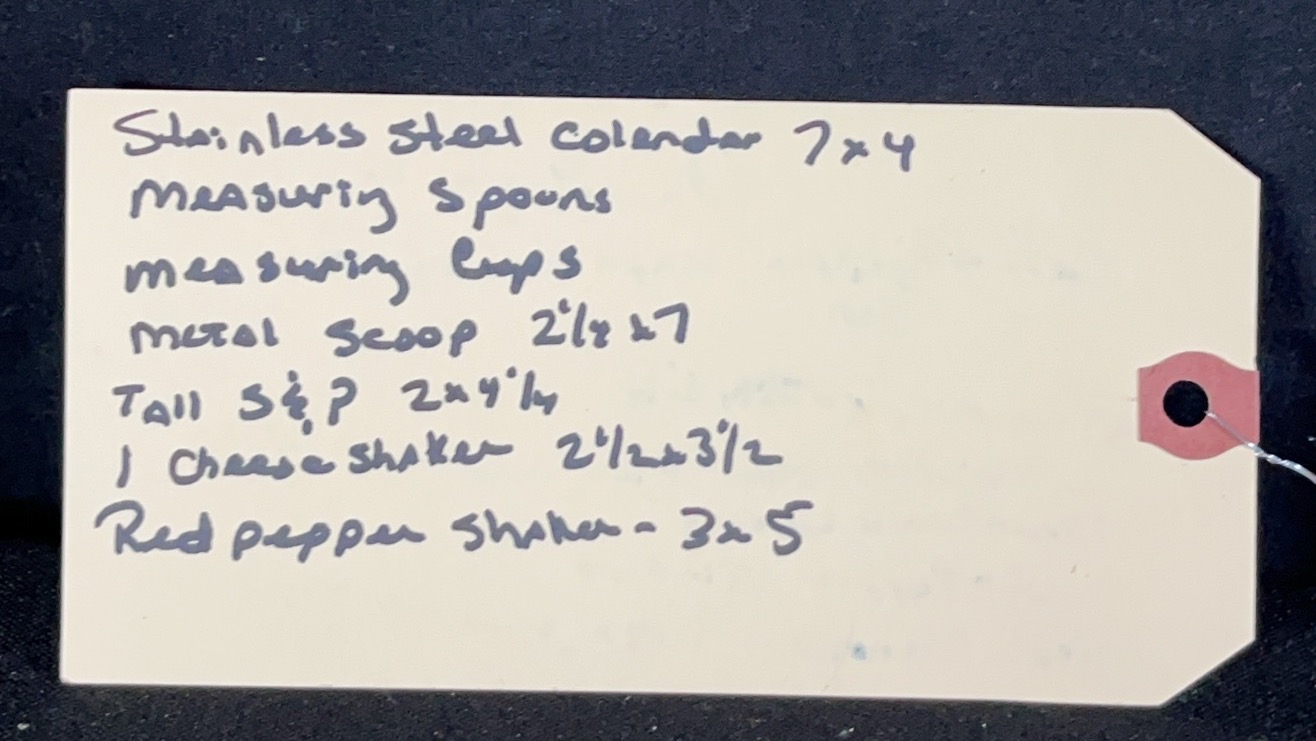 Stainless Steel Colendar 7x4
Measuring Spoons
measuring Cups
metal Scoop 2 1/4 x 7
Tall S & P 2x4 1/4
1 Cheese Shaker 2 1/2 x 3 1/2
Red pepper Shaker - 3x5